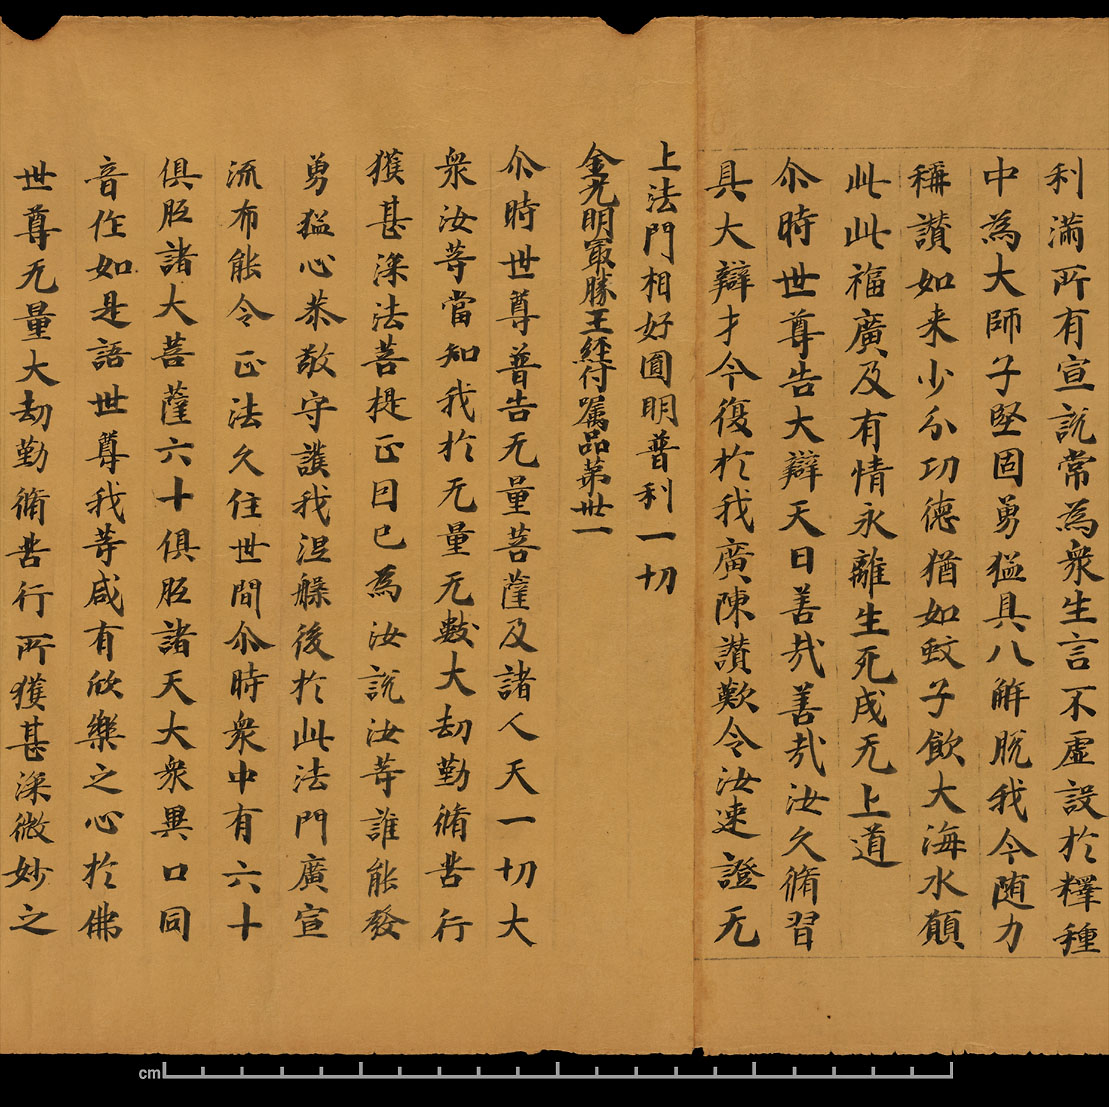 利滿所有宣說常為衆生言不虛設於釋種
中為大師子堅固勇猛具八解脫我今随力
稱讚如来少分功德猶如蚊子飲大海水願
此此福廣及有情永離生死成无上道
尒時世尊告大辯天曰善哉善哉汝久脩習
具大辯才今復於我廣陳讚歎令汝速證无
上法門相好圓明普利一切
金光明最勝王經付囑品第卅一
尒時世尊普告无量菩薩及諸人天一切大
衆汝等當知我於无量无數大劫勤脩苦行
獲甚深法菩提正因已為汝說汝等誰能發
勇猛心恭敬守護我涅槃後於此法門廣宣
流布能令正法久住世間尒時衆中有六十
俱胝諸大菩薩六十俱胝諸天大衆異口同
音作如是語世尊我等咸有欣樂之心於佛
世尊无量大劫勤脩苦行所獲甚深微妙之
cm